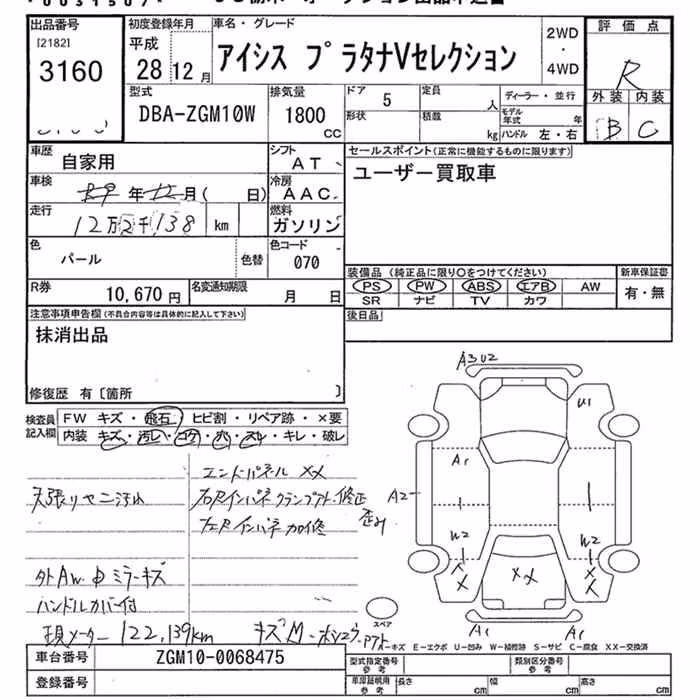 出品番号
[2182]
3160
初度登録年月
平成
28 12 月
車名・グレード
アイシス プラタナVセレクション
2WD
・
4WD
評価点
R
外装 内装
B C
型式
DBA-ZGM10W
排気量
1800
cc
ドア 5
形状
定員 人
積載 kg
ディーラー・並行
モデル年式 年
ハンドル 左・右
車歴 自家用
シフト
AT
車検 年 月( 日)
冷房
AAC
走行 12万2千138 km
燃料
ガソリン
色 パール 色替
色コード
070
R券 10,670 円
名変通知期限 月 日
セールスポイント(正常に機能するものに限ります)
ユーザー買取車
装備品(純正品に限り○をつけてください)
PS PW ABS エアB AW
SR ナビ TV カワ
新車保証書
有・無
後日品
注意事項申告欄(不具合内容等は具体的に記入して下さい)
抹消出品
修復歴 有〔箇所 〕
検査員
記入欄
FW キズ・飛石・ヒビ割・リペア跡・×要
内装 キズ・汚レ・コゲ・穴・スレ・キレ・破レ
エンドパネル XX
天張りヤニ汚れ
右Rインパネクランプアト・修正
歪み
左Rインパネ加修
外AW ミラーキズ
ハンドルカバー付
現メーター 122,139km
A3 U2
U1
A1
A2
W2
W2
XX
A1
A1
スペア
A-キズ E-エクボ U-凹み W-補修跡 S-サビ C-腐食 XX-交換済
車台番号 ZGM10-0068475
登録番号
型式指定番号
参考
類別区分番号
参考
車庫証明用
参考
長さ cm
幅 cm
高さ cm